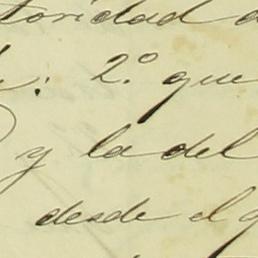 toridad d
: 2.º que
y la del
desde el g